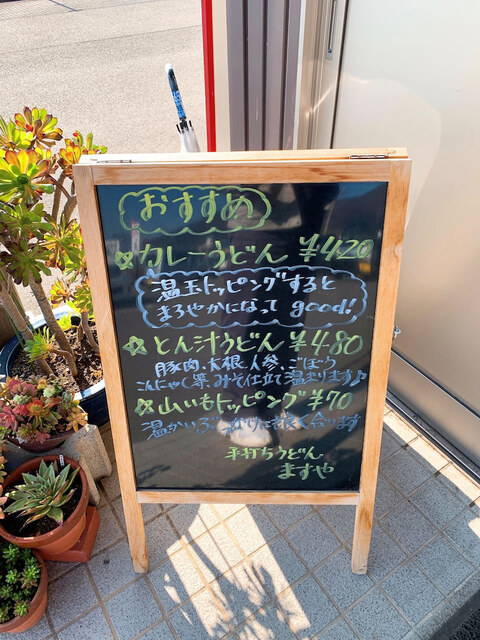 おすすめ
☆カレーうどん ¥420
温玉トッピングすると
まろやかになって good!
☆とん汁うどん ¥480
豚肉、大根、人参、ごぼう
こんにゃく みそ仕立て 温まります♪
☆山いもトッピング ¥70
温かい、ぶっかけにも良く合います
手打ちうどん
ますや